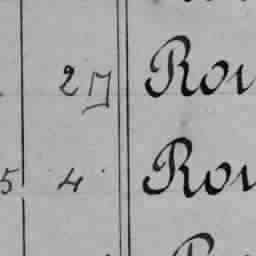 27 Rou
5 4 Rou